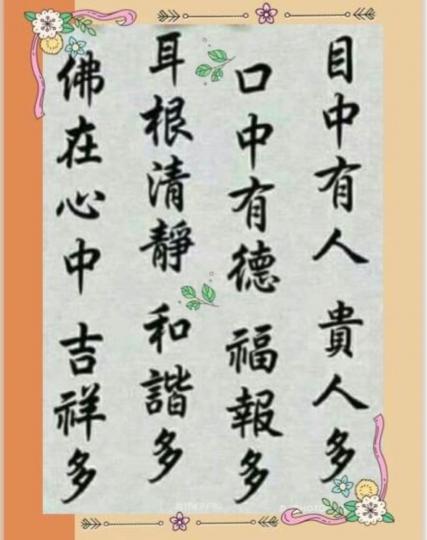 目中有人 貴人多
口中有德 福報多
耳根清靜 和諧多
佛在心中 吉祥多